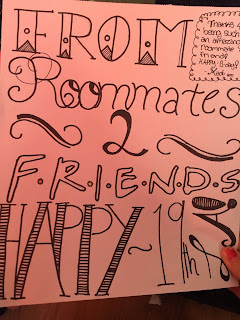 FROM
Roommates
2
F.R.I.E.N.D.S
HAPPY~19th
Thanks 4
being such
an amazing
roommate &
friend!
HAPPY B-day!